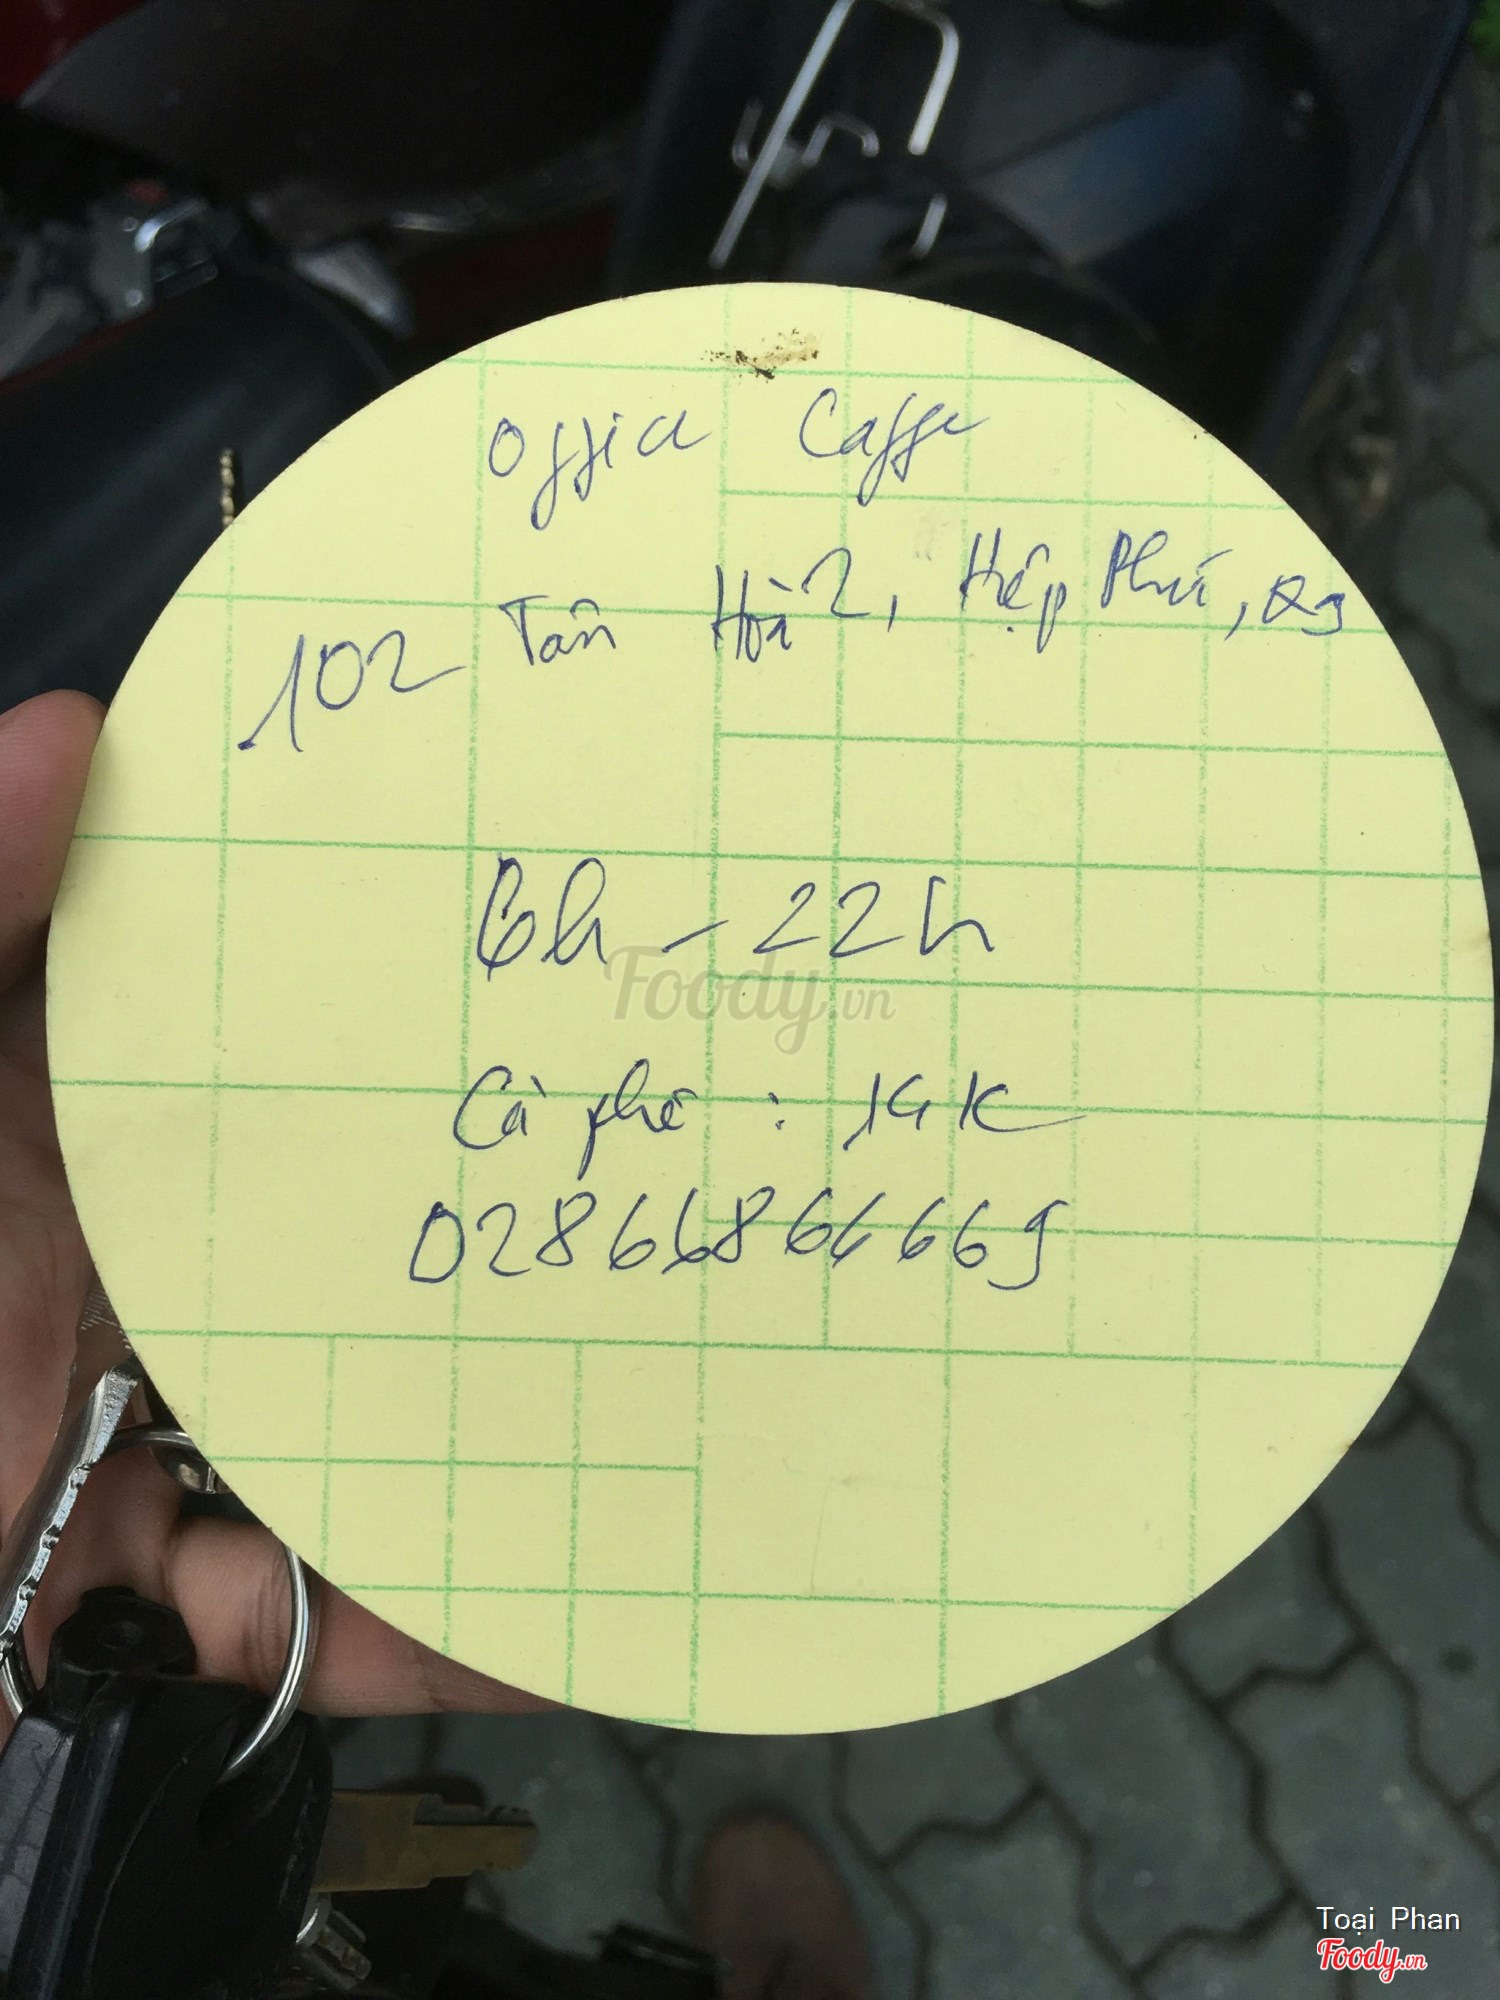 Office Caffe
102 Tân Hoà 2, Hiệp Phú, Q9
6h - 22h
Foody.vn
Cà phê : 14K
02866864669
Toại Phan
Foody.vn